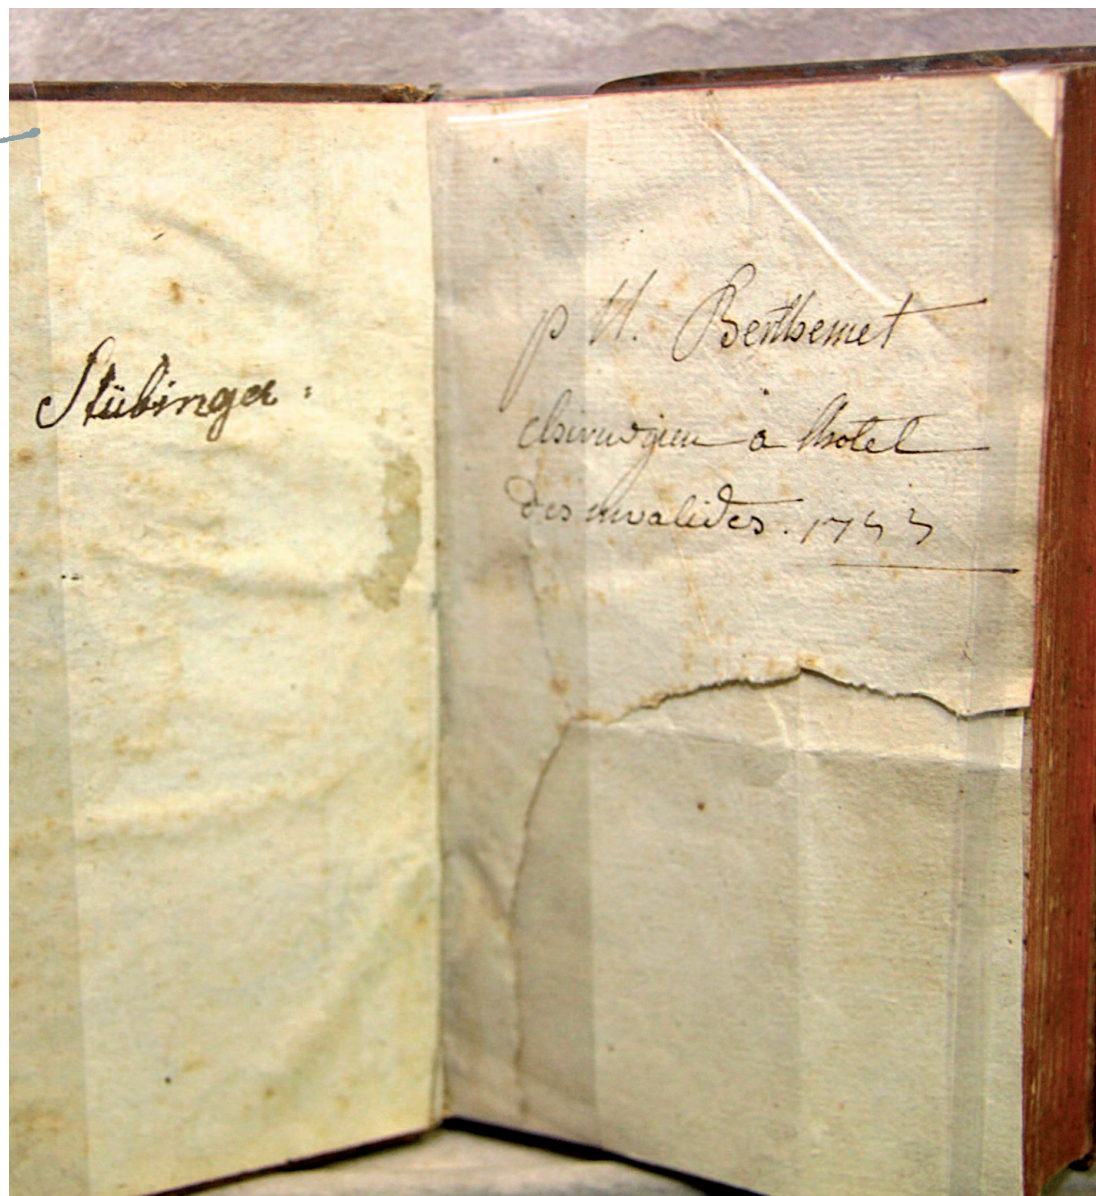 Stübinger :
p H. Berthemet
chirurgien a lhotel
des invalides. 1733